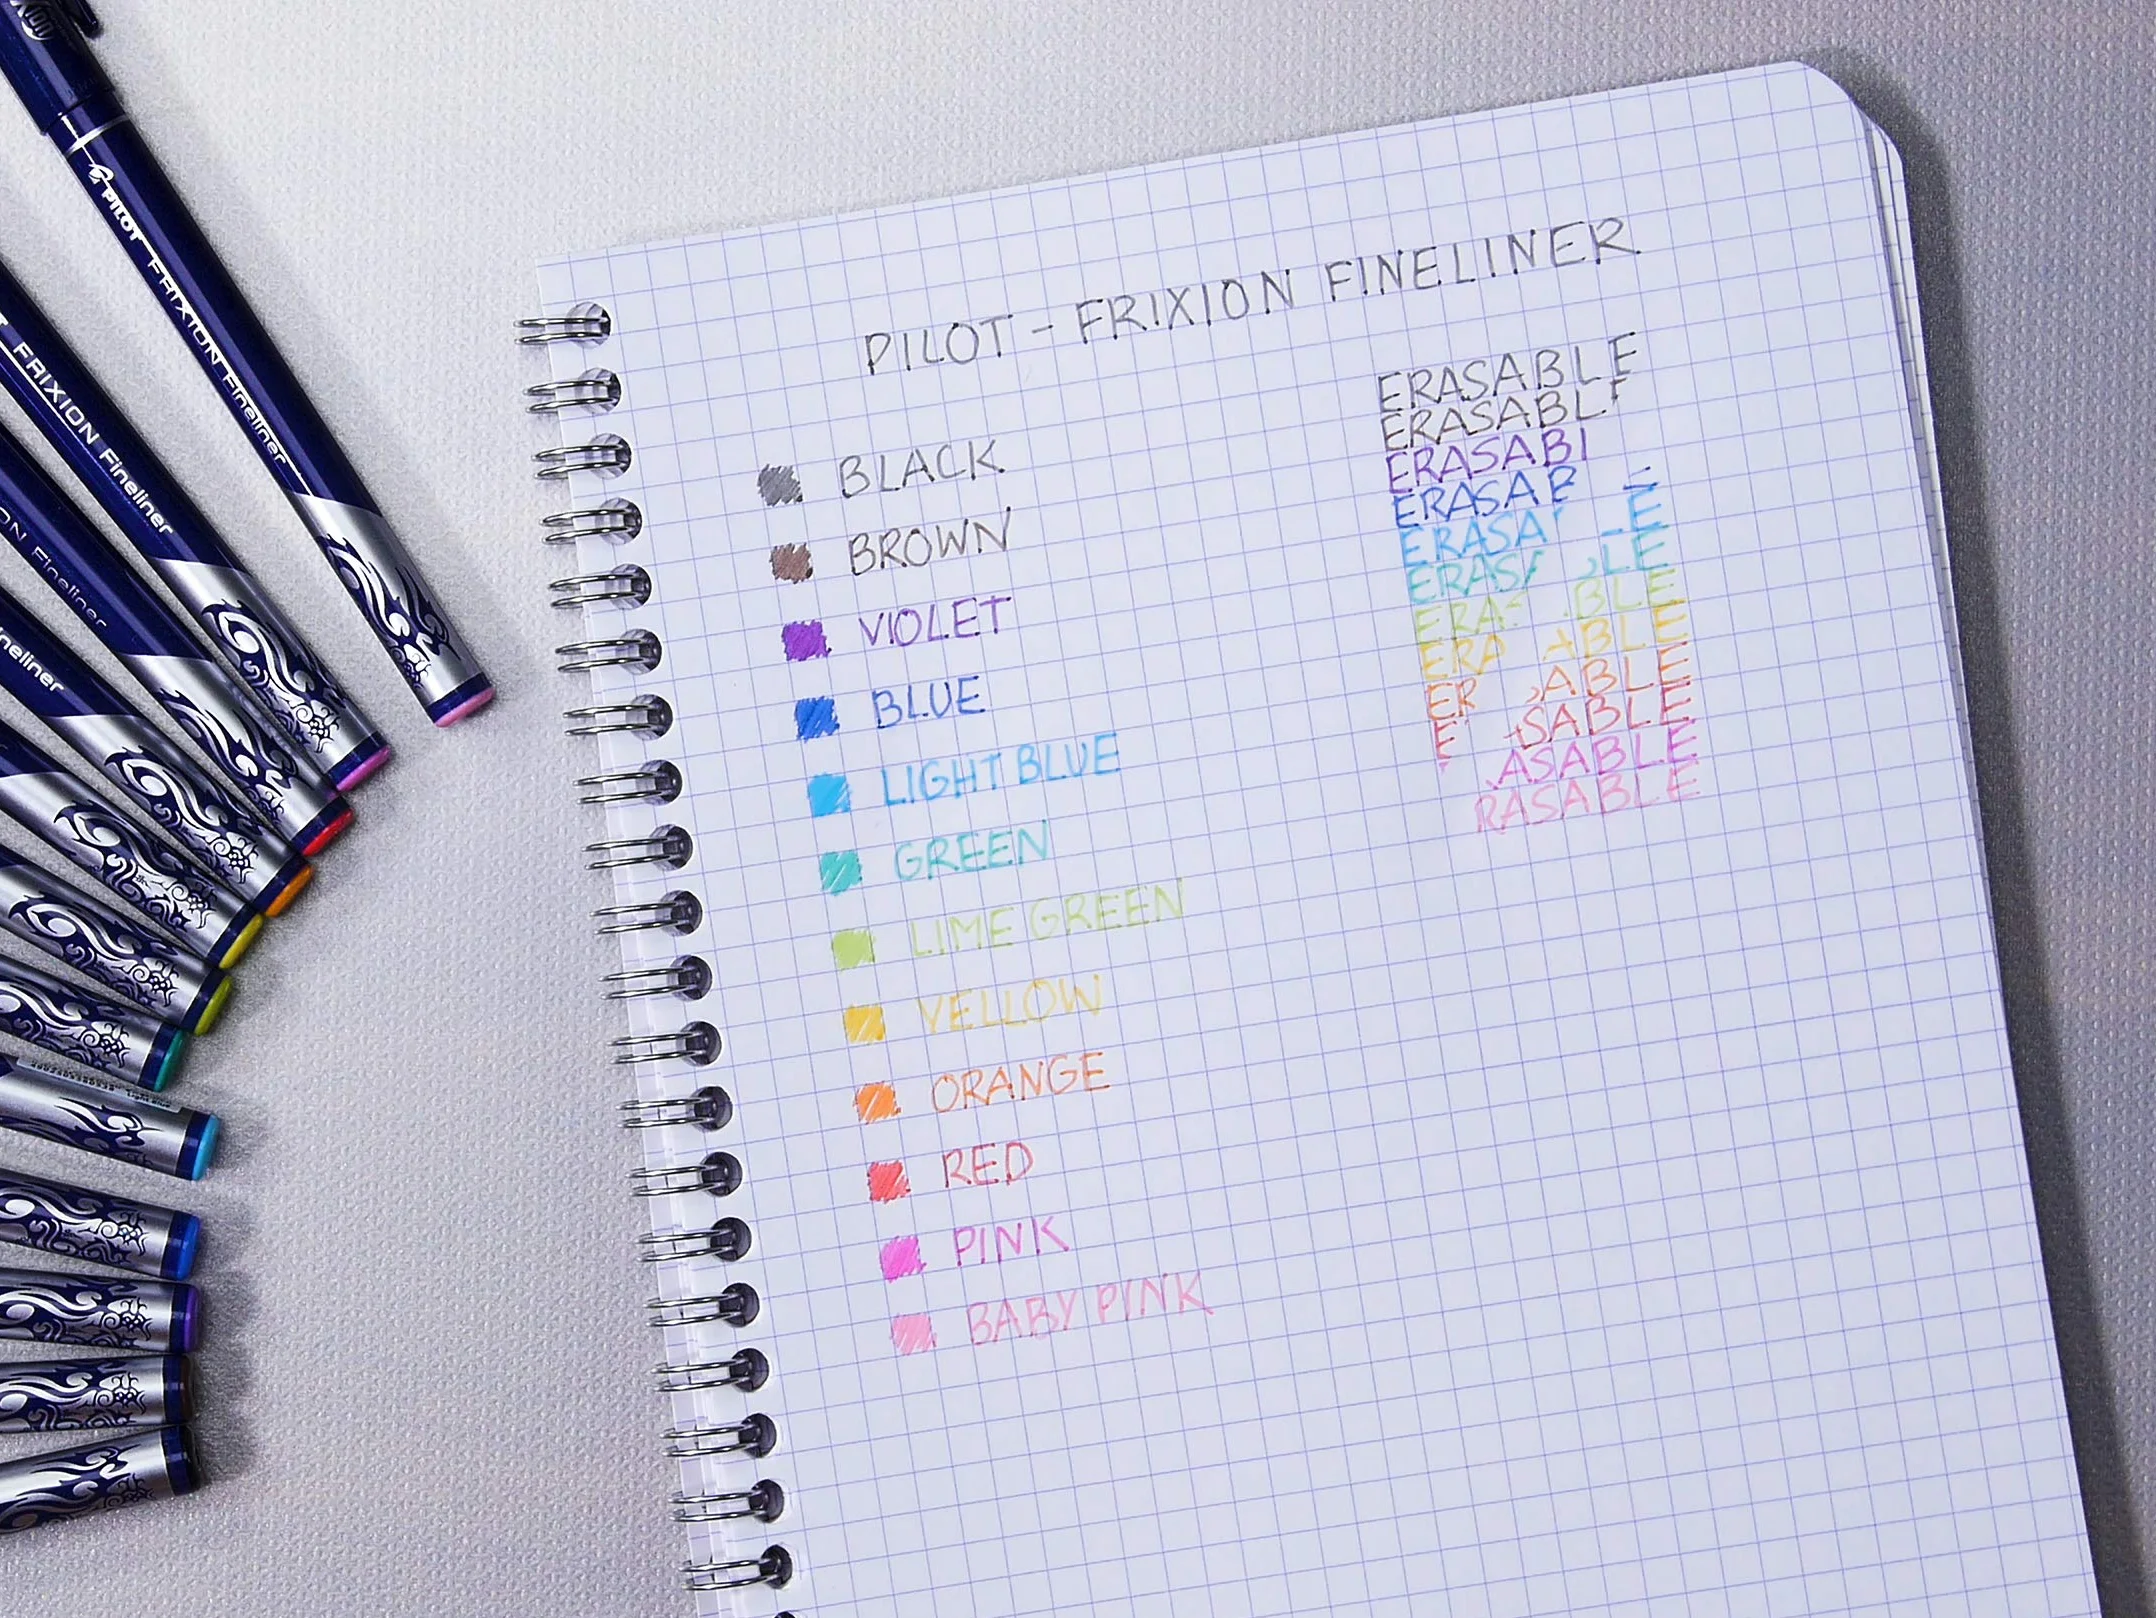 PILOT FRIXION Fineliner
FRIXION Fineliner
ON Fineliner
neliner
Light Blue
PILOT - FRIXION FINELINER
BLACK
BROWN
VIOLET
BLUE
LIGHT BLUE
GREEN
LIME GREEN
YELLOW
ORANGE
RED
PINK
BABY PINK
ERASABLE
ERASABLE
ERASABL
ERASAB E
ERASA LE
ERAS LE
ERA BLE
ERA ABLE
ER ABLE
E SABLE
ASABLE
RASABLE